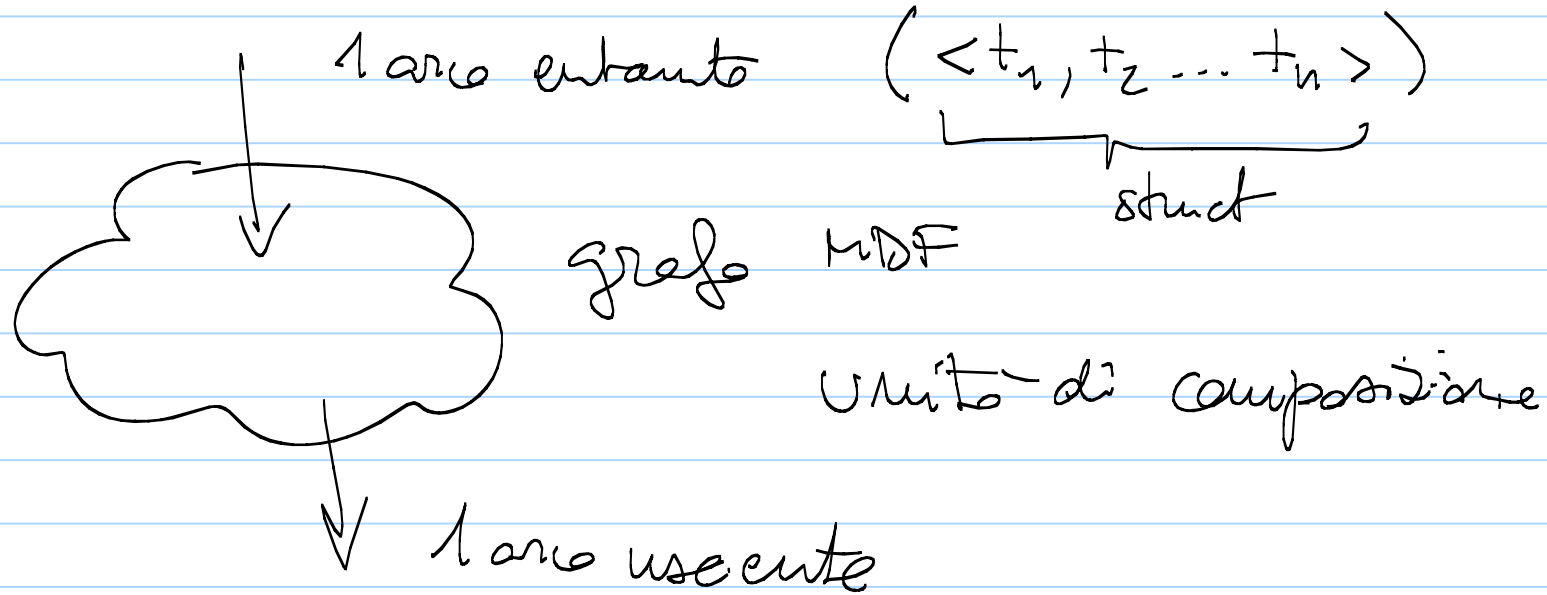 1 arco entrante (<t₁, t₂ ... tₙ>)
struct
grafo MDF
unità di composizione
1 arco uscente